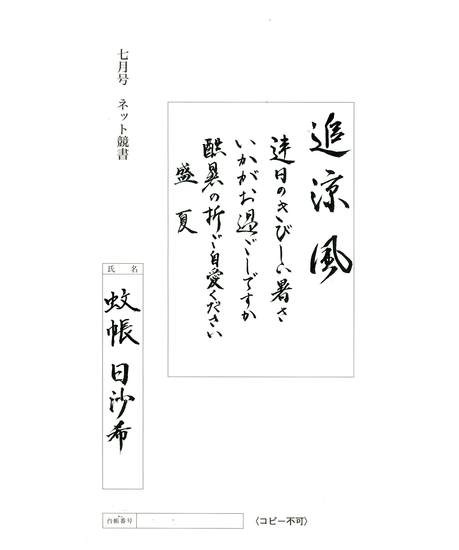 七月号 ネット競書
追涼風
連日のきびしい暑さ
いかがお過ごしですか
酷暑の折ご自愛ください
盛夏
氏名
蚊帳 日沙希
台帳番号
〈コピー不可〉